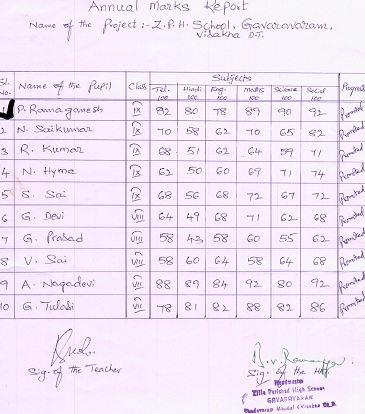 Annual Marks Report
Name of the Project :- Z.P.H. School, Gavaravaram,
Visakha DT.
Sl. No. Name of the Pupil Class Subjects Progress
Tel. 100 Hindi 100 Eng. 100 Maths 100 Science 100 Social 100
1 P. Ramaganesh IX 92 80 78 89 90 92 Promoted
2 N. Saikumar IX 70 58 62 70 65 82 Promoted
3 R. Kumar IX 68 51 62 64 59 71 Promoted
4 N. Hyma IX 62 50 60 69 71 74 Promoted
5 S. Sai IX 68 56 68 72 67 72 Promoted
6 G. Devi VIII 64 49 68 71 62 68 Promoted
7 G. Prasad VIII 58 43 58 60 55 62 Promoted
8 V. Sai VIII 58 60 64 58 64 68 Promoted
9 A. Nagadevi VII 88 89 84 92 80 92 Promoted
10 G. Tulasi VII 78 81 82 88 82 86 Promoted
Sig. of the Teacher
Sig. of the HM
Zilla Parishad High School
GAVARAVARAM